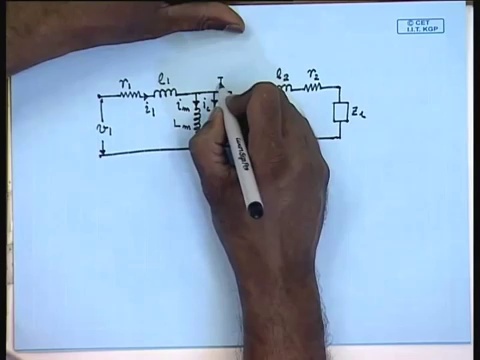 © CET
I.I.T. KGP
r₁ l₁ l₂ r₂
i₁ i_m i_c
L_m
v₁
Z_L